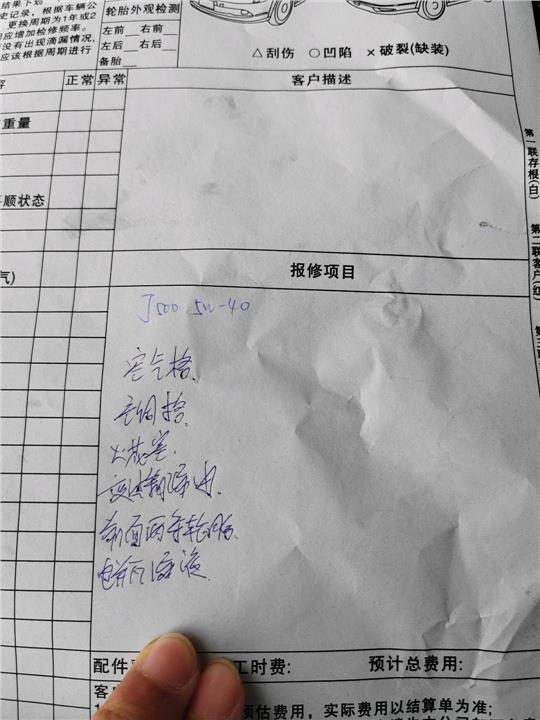 结果下划
史记录，根据车辆公
更换周期为1年或2
应增加检修频率。
没有出现滴漏情况，
应该根据周期进行
轮胎外观检测
左前 右前
左后 右后
备胎
△刮伤 ○凹陷 ×破裂(缺装)
正常 异常
客户描述
重量
顺状态
气)
第一联存根(白)
第二联客户(红)
报修项目
J500 5W-40
空气格
空调格
火花塞
变速箱油
前面两条轮胎
电瓶
配件
工时费:
预计总费用:
预估费用，实际费用以结算单为准;